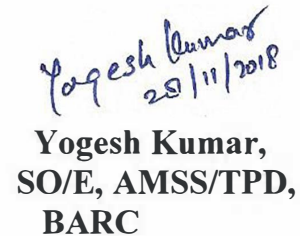 Yogesh Kumar
28/11/2018
Yogesh Kumar,
SO/E, AMSS/TPD,
BARC